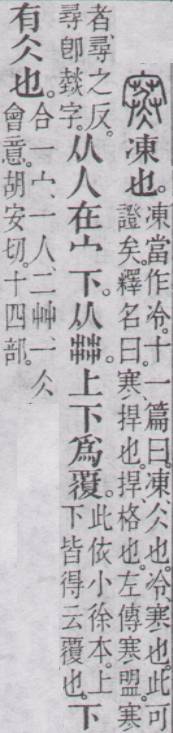 寒凍也。凍當作冷。十一篇曰。凍、仌也。冷、寒也。此可
證矣。釋名曰。寒、捍也。捍格也。左傳寒盟。寒
者、尋之反。
尋卽燅字。从人在宀下。从茻上下爲覆。此依小徐本。上
下皆得云覆也。下
有仌也。合一宀、一人、二艸、一仌
會意。胡安切。十四部。